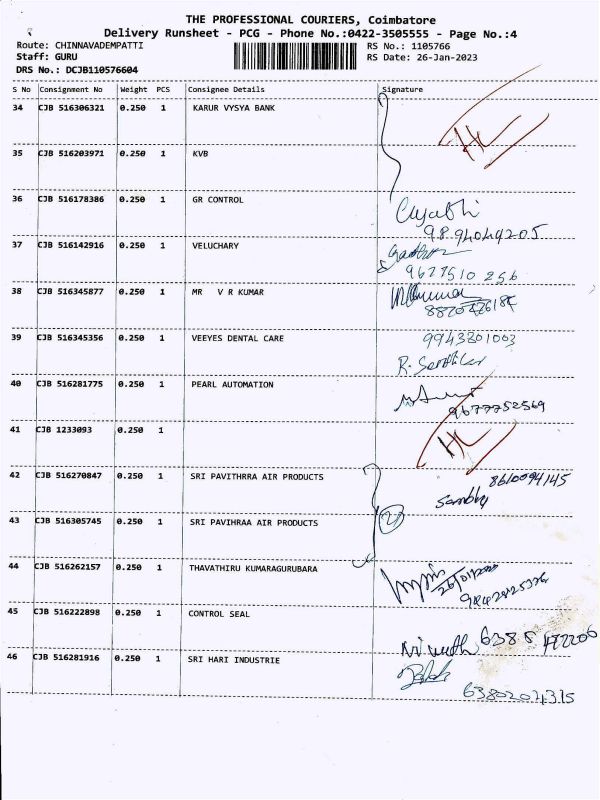 THE PROFESSIONAL COURIERS, Coimbatore
Delivery Runsheet - PCG - Phone No.:0422-3505555 - Page No.:4
Route: CHINNAVADEMPATTI
RS No.: 1105766
Staff: GURU
RS Date: 26-Jan-2023
DRS No.: DCJB110576604
S No Consignment No Weight PCS Consignee Details Signature
34 CJB 516306321 0.250 1 KARUR VYSYA BANK
HC
35 CJB 516203971 0.250 1 KVB
36 CJB 516178386 0.250 1 GR CONTROL
9894049205
37 CJB 516142916 0.250 1 VELUCHARY
9677510 256
38 CJB 516345877 0.250 1 MR V R KUMAR
39 CJB 516345356 0.250 1 VEEYES DENTAL CARE
9943801003
40 CJB 516281775 0.250 1 PEARL AUTOMATION
9677752569
41 CJB 1233093 0.250 1
HC
42 CJB 516270847 0.250 1 SRI PAVITHRRA AIR PRODUCTS
8610094145
43 CJB 516305745 0.250 1 SRI PAVIHRAA AIR PRODUCTS
2
44 CJB 516262157 0.250 1 THAVATHIRU KUMARAGURUBARA
45 CJB 516222898 0.250 1 CONTROL SEAL
6385 472206
46 CJB 516281916 0.250 1 SRI HARI INDUSTRIE
6380204315